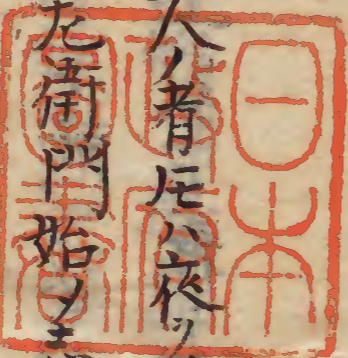 日本
人ノ者𪜈ハ夜ヲ
左衛門始メ